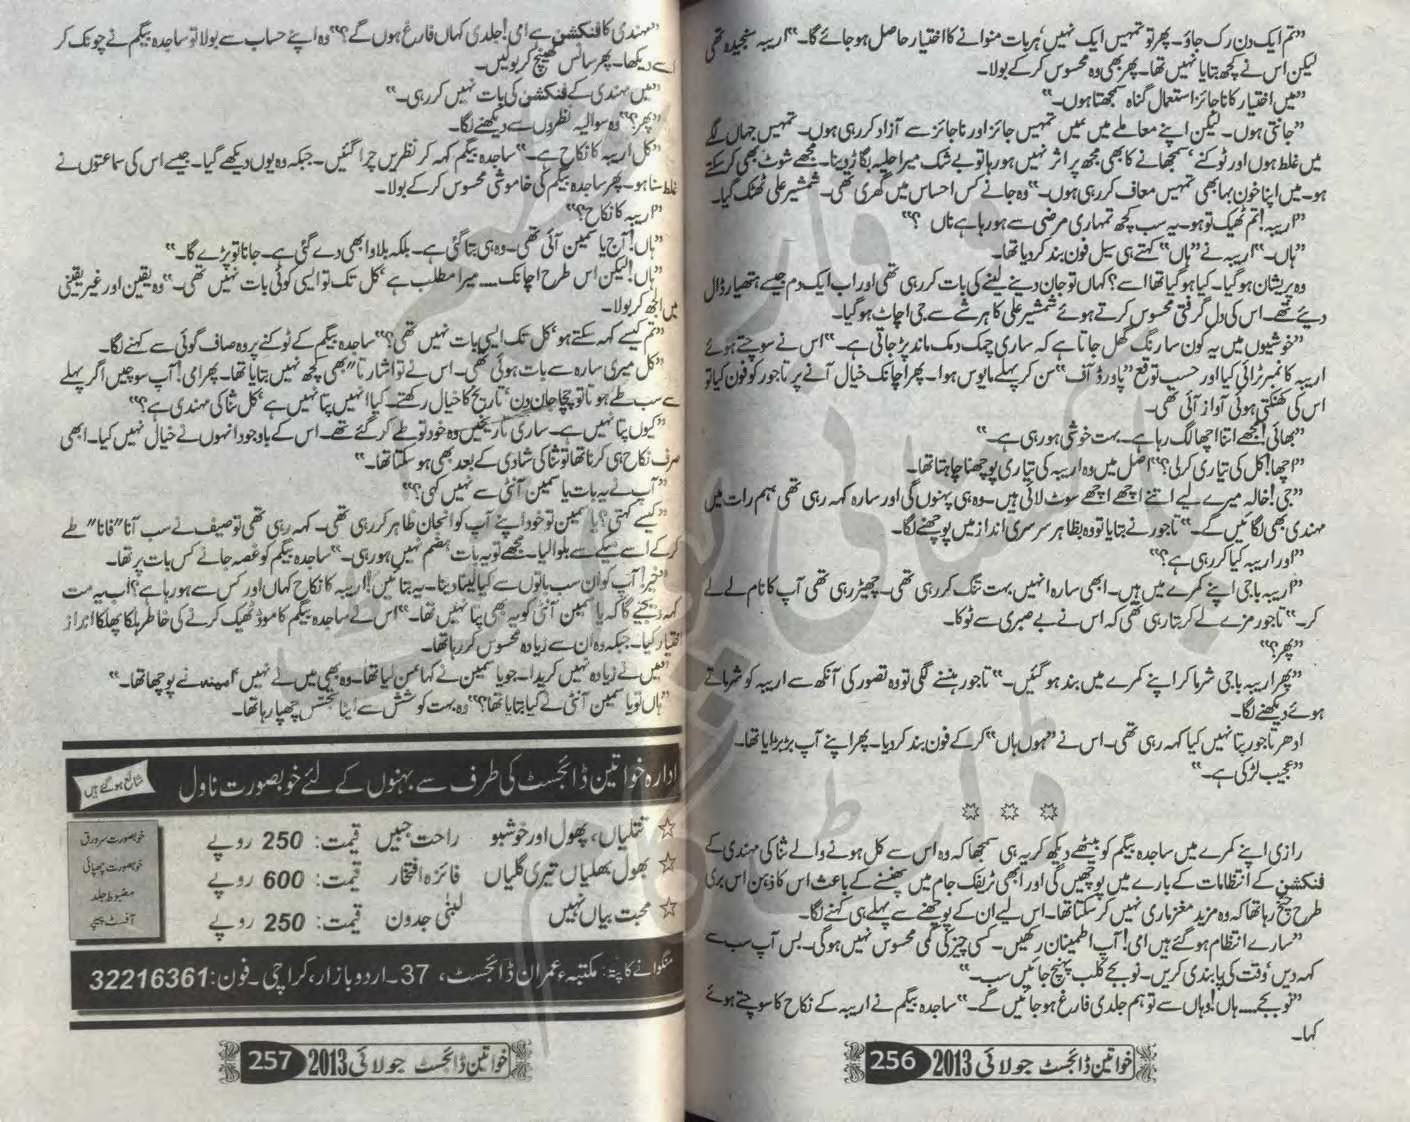 ”تم ایک دن رک جاؤ۔ پھر تو تمہیں ایک نہیں‘ ہر بات منوانے کا اختیار حاصل ہو جائے گا۔“ اریبہ سنجیدہ تھی
لیکن اس نے کچھ بتایا نہیں تھا۔ پھر بھی وہ محسوس کر کے بولا۔
”میں اختیار کا ناجائز استعمال گناہ سمجھتا ہوں۔“
”جانتی ہوں۔ لیکن اپنے معاملے میں میں تمہیں جائز اور ناجائز سے آزاد کر رہی ہوں۔ تمہیں جہاں لگے
میں غلط ہوں اور ٹوکنے‘ سمجھانے کا بھی مجھ پر اثر نہیں ہو رہا تو بے شک میرا حلیہ بگاڑ دینا۔ مجھے شوٹ بھی کر سکتے
ہو۔ میں اپنا خون بہا بھی تمہیں معاف کر رہی ہوں۔“ وہ جانے کس احساس میں گھری تھی۔ شمشیر علی ٹھٹک گیا۔
”اریبہ! تم ٹھیک تو ہو۔ یہ سب کچھ تمہاری مرضی سے ہو رہا ہے ناں ؟“
”ہاں۔“ اریبہ نے ”ہاں“ کہتے ہی سیل فون بند کر دیا تھا۔
وہ پریشان ہو گیا۔ کیا ہو گیا تھا اسے؟ کہاں تو جان دینے لینے کی بات کر رہی تھی اور اب ایک دم جیسے ہتھیار ڈال
دیے تھے۔ اس کی دل گرفتی محسوس کرتے ہوئے شمشیر علی کا ہر شے سے جی اچاٹ ہو گیا۔
”خوشیوں میں یہ کون سا رنگ گھل جاتا ہے کہ ساری چمک دمک ماند پڑ جاتی ہے۔“ اس نے سوچتے ہوئے
اریبہ کا نمبر ٹرائی کیا اور حسب توقع ”پاورڈ آف“ سن کر پہلے مایوس ہوا۔ پھر اچانک خیال آنے پر تاجور کو فون کیا تو
اس کی کھنکتی ہوئی آواز آئی تھی۔
”بھائی! مجھے اتنا اچھا لگ رہا ہے۔ بہت خوشی ہو رہی ہے۔“
”اچھا! کل کی تیاری کر لی؟“ اصل میں وہ اریبہ کی تیاری پوچھنا چاہتا تھا۔
”جی! خالہ میرے لیے اتنے اچھے اچھے سوٹ لائی ہیں۔ وہ ہی پہنوں گی اور سارہ کہہ رہی تھی ہم رات میں
مہندی بھی لگائیں گے۔“ تاجور نے بتایا تو وہ بظاہر سرسری انداز میں پوچھنے لگا۔
”اور اریبہ کیا کر رہی ہے؟“
”اریبہ باجی اپنے کمرے میں ہیں۔ ابھی سارہ انہیں بہت تنگ کر رہی تھی۔ چھیڑ رہی تھی آپ کا نام لے لے
کر۔“ تاجور مزے لے کر بتا رہی تھی کہ اس نے بے صبری سے ٹوکا۔
”پھر؟“
”پھر اریبہ باجی شرما کر اپنے کمرے میں بند ہو گئیں۔“ تاجور ہنسنے لگی تو وہ تصور کی آنکھ سے اریبہ کو شرماتے
ہوئے دیکھنے لگا۔
ادھر تاجور پتا نہیں کیا کہہ رہی تھی۔ اس نے ”ہوں ہاں“ کر کے فون بند کر دیا۔ پھر اپنے آپ بڑبڑایا تھا۔
”عجیب لڑکی ہے۔“
رازی اپنے کمرے میں ساجدہ بیگم کو بیٹھے دیکھ کر یہ ہی سمجھا کہ وہ اس سے کل ہونے والے ثنا کی مہندی کے
فنکشن کے انتظامات کے بارے میں پوچھیں گی اور ابھی ٹریفک جام میں پھنسنے کے باعث اس کا ذہن اس بری
طرح چیخ رہا تھا کہ وہ مزید مغزماری نہیں کر سکتا تھا۔ اس لیے ان کے پوچھنے سے پہلے ہی کہنے لگا۔
”سارے انتظام ہو گئے ہیں امی! آپ اطمینان رکھیں۔ کسی چیز کی کمی محسوس نہیں ہو گی۔ بس آپ سب سے
کہہ دیں‘ وقت کی پابندی کریں۔ نو بجے کلب پہنچ جائیں سب۔“
”نو بجے.... ہاں! وہاں سے تو ہم جلدی فارغ ہو جائیں گے۔“ ساجدہ بیگم نے اریبہ کے نکاح کا سوچتے ہوئے
کہا۔
خواتین ڈائجسٹ جولائی 2013 256
”مہندی کا فنکشن ہے امی! جلدی کہاں فارغ ہوں گے؟“ وہ اپنے حساب سے بولا تو ساجدہ بیگم نے چونک کر
اسے دیکھا۔ پھر سانس کھینچ کر بولیں۔
”میں مہندی کے فنکشن کی بات نہیں کر رہی۔“
”پھر؟“ وہ سوالیہ نظروں سے دیکھنے لگا۔
”کل اریبہ کا نکاح ہے۔“ ساجدہ بیگم کہہ کر نظریں چرا گئیں۔ جبکہ وہ یوں دیکھے گیا۔ جیسے اس کی سماعتوں نے
غلط سنا ہو۔ پھر ساجدہ بیگم کی خاموشی محسوس کر کے بولا۔
”اریبہ کا نکاح؟“
”ہاں! آج یاسمین آئی تھی۔ وہ ہی بتا گئی ہے۔ بلکہ بلاوا بھی دے گئی ہے۔ جانا تو پڑے گا۔“
”ہاں! لیکن اس طرح اچانک.... میرا مطلب ہے‘ کل تک تو ایسی کوئی بات نہیں تھی۔“ وہ یقین اور غیر یقینی
میں الجھ کر بولا۔
”تم کیسے کہہ سکتے ہو‘ کل تک ایسی بات نہیں تھی؟“ ساجدہ بیگم کے ٹوکنے پر وہ صاف گوئی سے کہنے لگا۔
”کل میری سارہ سے بات ہوئی تھی۔ اس نے تو اشارتا“ بھی کچھ نہیں بتایا تھا۔ پھر امی! آپ سوچیں اگر پہلے
سے سب طے ہوتا تو چچا جان دن‘ تاریخ کا خیال رکھتے۔ کیا انہیں پتا نہیں ہے‘ کل ثنا کی مہندی ہے؟“
”کیوں پتا نہیں ہے۔ ساری تاریخیں وہ خود تو طے کر گئے تھے۔ اس کے باوجود انہوں نے خیال نہیں کیا۔ ابھی
صرف نکاح ہی کرنا تھا تو ثنا کی شادی کے بعد بھی ہو سکتا تھا۔“
”آپ نے یہ بات یاسمین آنٹی سے نہیں کہی؟“
”کیسے کہتی؟ یاسمین تو خود اپنے آپ کو انجان ظاہر کر رہی تھی۔ کہہ رہی تھی توصیف نے سب آنا“فانا“ طے
کر کے اسے میکے سے بلوا لیا۔ مجھے تو یہ بات ہضم نہیں ہو رہی۔“ ساجدہ بیگم کو غصہ جانے کس بات پر تھا۔
”خیر! آپ کو ان سب باتوں سے کیا لینا دینا۔ یہ بتائیں! اریبہ کا نکاح کہاں اور کس سے ہو رہا ہے؟ اب یہ مت
کہہ دیجئے گا کہ یاسمین آنٹی کو یہ بھی پتا نہیں تھا۔“ اس نے ساجدہ بیگم کا موڈ ٹھیک کرنے کی خاطر ہلکا پھلکا انداز
اختیار کیا۔ جبکہ وہ ان سے زیادہ محسوس کر رہا تھا۔
”میں نے زیادہ نہیں کریدا۔ جو یاسمین نے کہا سن لیا تھا۔ وہ بھی میں نے نہیں امینہ نے پوچھا تھا۔“
”ہاں تو یاسمین آنٹی نے کیا بتایا تھا؟“ وہ بہت کوشش سے اپنا تجسس چھپا رہا تھا۔
ادارہ خواتین ڈائجسٹ کی طرف سے بہنوں کے لئے خوبصورت ناول
شائع ہو گئے ہیں
تتلیاں، پھول اور خوشبو راحت جبیں قیمت: 250 روپے
بھول بھلیاں تیری گلیاں فائزہ افتخار قیمت: 600 روپے
محبت بیاں نہیں لبنیٰ جدون قیمت: 250 روپے
خوبصورت سرورق
خوبصورت چھپائی
مضبوط جلد
آفسٹ پیپر
منگوانے کا پتہ: مکتبہء عمران ڈائجسٹ، 37۔ اردو بازار، کراچی۔ فون: 32216361
خواتین ڈائجسٹ جولائی 2013 257